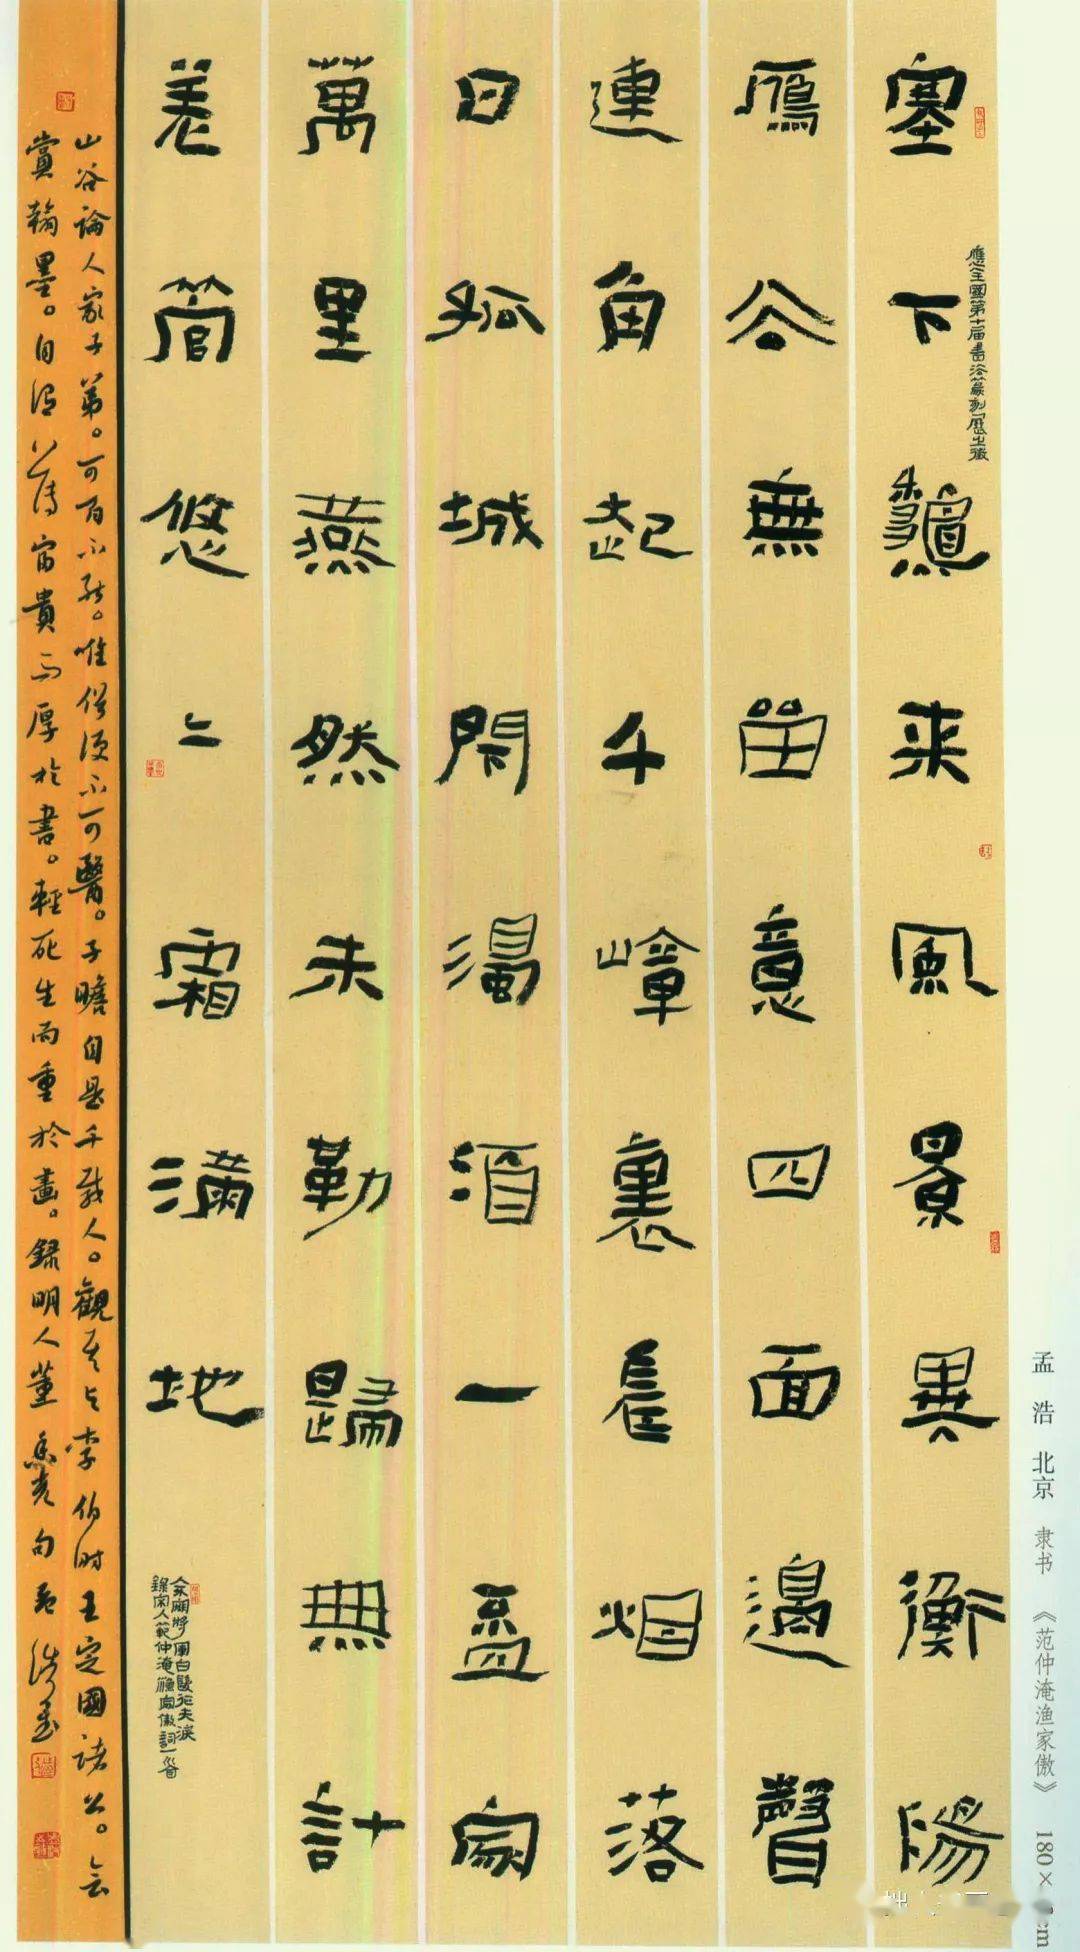 應全國第十届書法篆刻展之徵
塞下龝来風景異衡陽
鴈去無畱意四面邊聲
連角起千嶂裏長烟落
日孤城閉濁酒一盃家
萬里燕然未勒歸無計
羌管悠二霜滿地
人不寐將軍白髮征夫淚
錄宋人範仲淹漁家傲詞一首
山谷論人家子弟。可百不能。唯俗便不可醫。子瞻自是千載人。觀其与李伯時王定國諸公。会
賞翰墨。自得薄富貴而厚於書。輕死生而重於畫。録明人董香光句孟浩
孟浩 北京 隶书 《范仲淹渔家傲》 180× cm